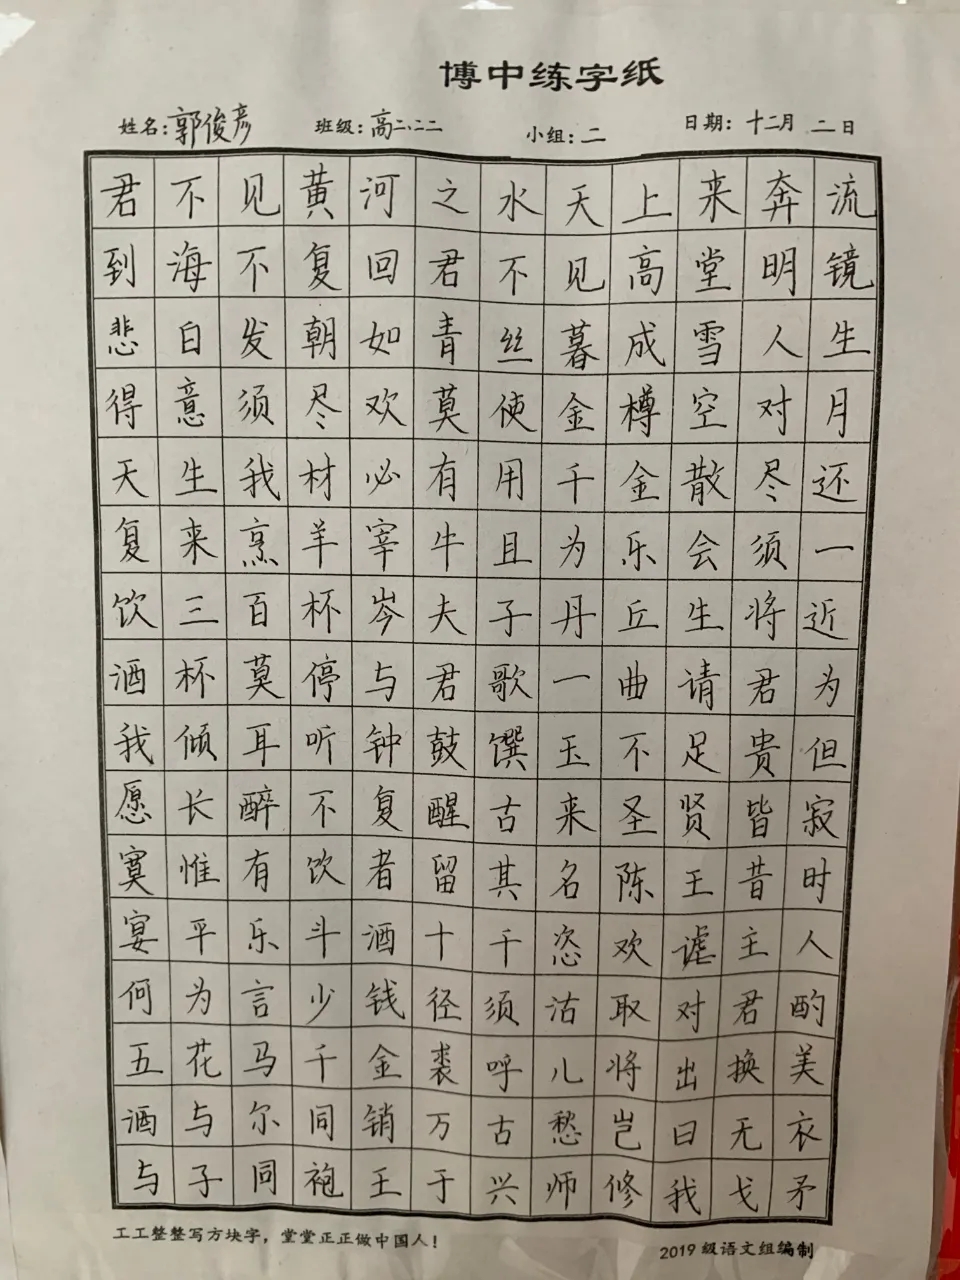 博中练字纸
姓名:郭俊彦 班级:高二、二二 小组:二 日期:十二月 二日
君不见黄河之水天上来奔流
到海不复回君不见高堂明镜
悲白发朝如青丝暮成雪人生
得意须尽欢莫使金樽空对月
天生我材必有用千金散尽还
复来烹羊宰牛且为乐会须一
饮三百杯岑夫子丹丘生将近
酒杯莫停与君歌一曲请君为
我倾耳听钟鼓馔玉不足贵但
愿长醉不复醒古来圣贤皆寂
寞惟有饮者留其名陈王昔时
宴平乐斗酒十千恣欢谑主人
何为言少钱径须沽取对君酌
五花马千金裘呼儿将出换美
酒与尔同销万古愁岂曰无衣
与子同袍王于兴师修我戈矛
工工整整写方块字，堂堂正正做中国人！
2019级语文组编制